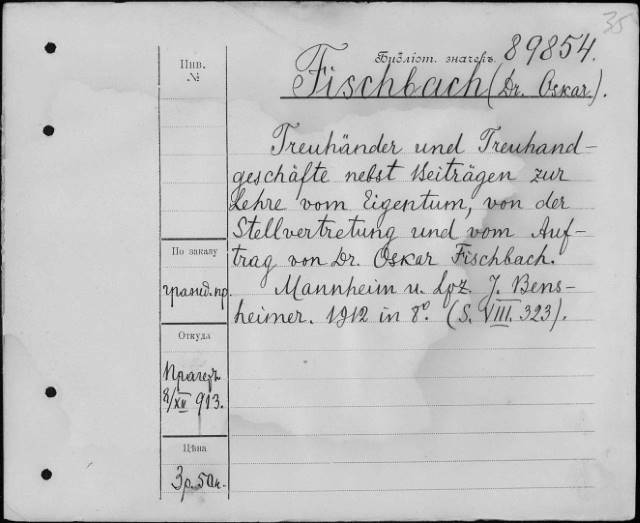 35
Библіот. значекъ 89854.
Инв.
№
Fischbach (Dr. Oskar).
Treuhänder und Treuhand-
geschäfte nebst Beiträgen zur
Lehre vom Eigentum, von der
Stellvertretung und vom Auf-
trag von Dr. Oskar Fischbach.
Mannheim u. Lpz J. Bens-
heimer. 1912 in 8°. (S. VIII. 323).
По заказу
гражд. пр.
Откуда
Прагеръ
8/XII 913.
Цѣна
3 р. 50 к.